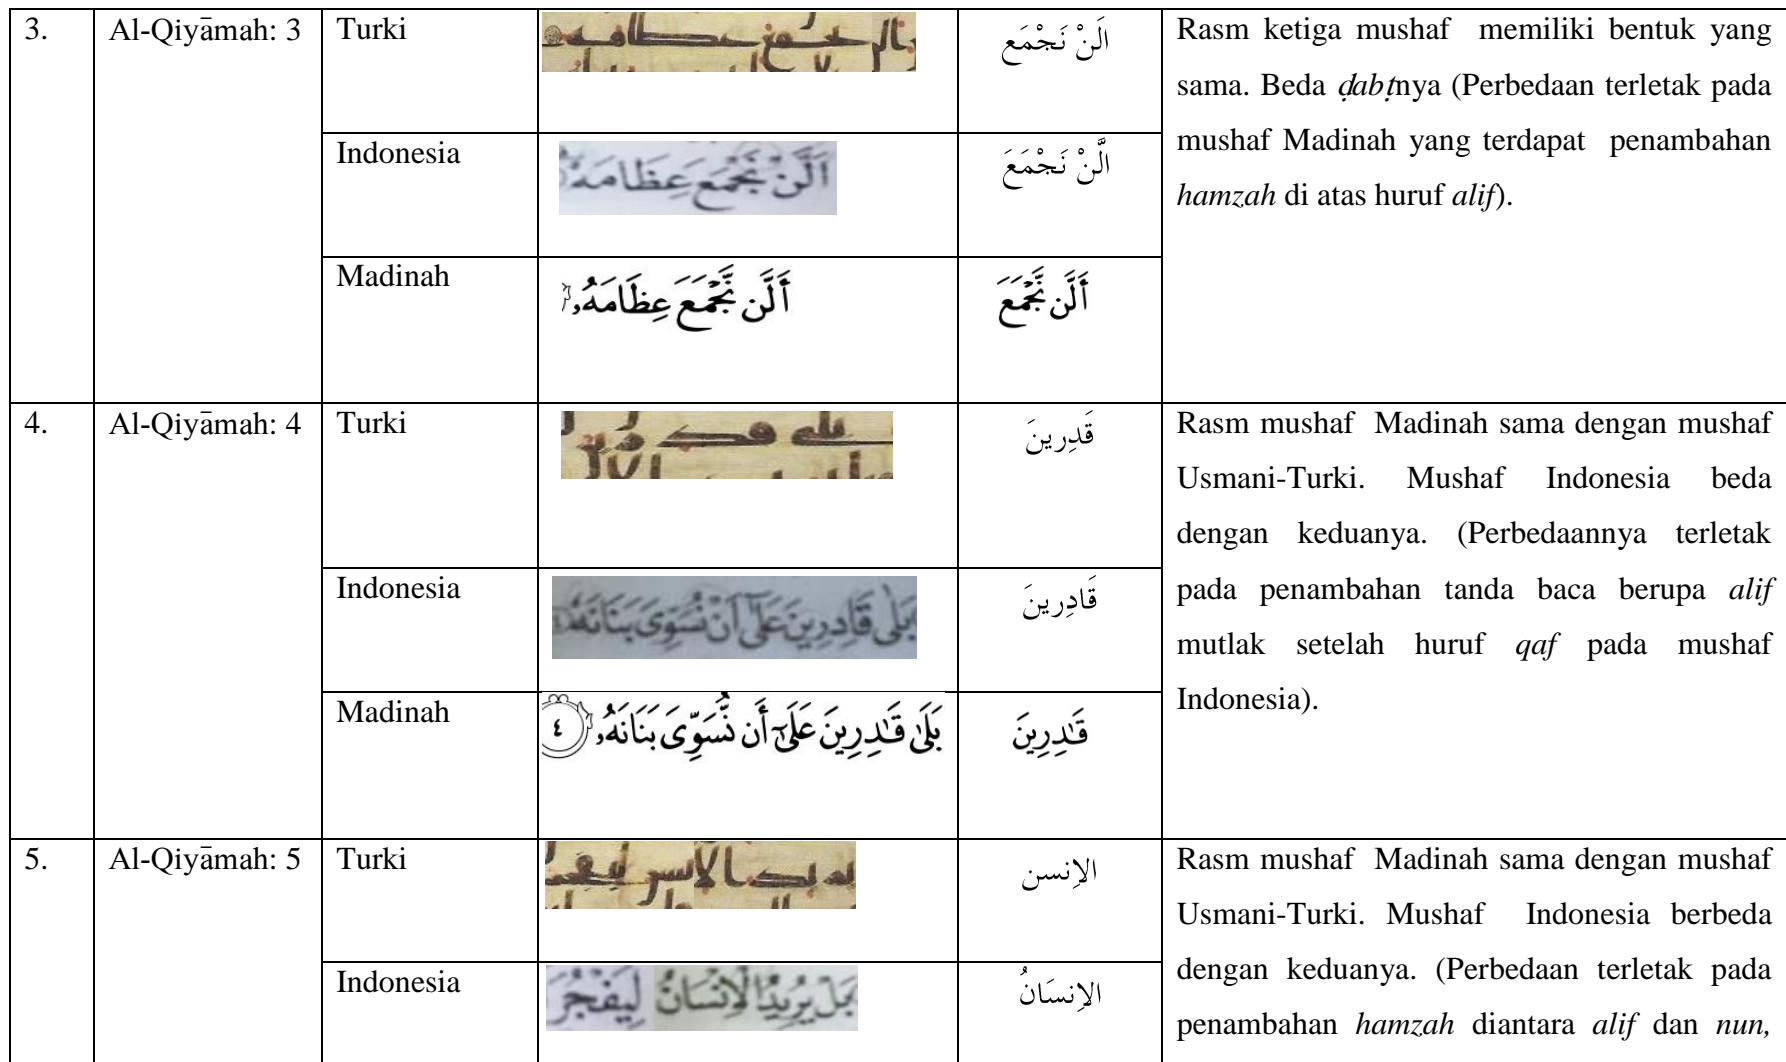 3.
Al-Qiyāmah: 3
Turki
الَنْ نَجْمَع
Rasm ketiga mushaf memiliki bentuk yang
sama. Beda ḍabṭnya (Perbedaan terletak pada
mushaf Madinah yang terdapat penambahan
hamzah di atas huruf alif).
Indonesia
اَلَّنْ نَجْمَعَ عِظَامَهٗ
الَّنْ نَجْمَعَ
Madinah
أَلَّن نَّجْمَعَ عِظَامَهُۥ ٣
أَلَّن نَّجْمَعَ
4.
Al-Qiyāmah: 4
Turki
قَدِرينَ
Rasm mushaf Madinah sama dengan mushaf
Usmani-Turki. Mushaf Indonesia beda
dengan keduanya. (Perbedaannya terletak
pada penambahan tanda baca berupa alif
mutlak setelah huruf qaf pada mushaf
Indonesia).
Indonesia
بَلٰى قَادِرِيْنَ عَلٰٓى اَنْ نُّسَوِّيَ بَنَانَهٗ
قَادِرينَ
Madinah
بَلَىٰ قَـٰدِرِينَ عَلَىٰٓ أَن نُّسَوِّىَ بَنَانَهُۥ ٤
قَـٰدِرِينَ
5.
Al-Qiyāmah: 5
Turki
الاِنسن
Rasm mushaf Madinah sama dengan mushaf
Usmani-Turki. Mushaf Indonesia berbeda
dengan keduanya. (Perbedaan terletak pada
penambahan hamzah diantara alif dan nun,
Indonesia
بَلْ يُرِيْدُ الْاِنْسَانُ لِيَفْجُرَ
الاِنسَانُ